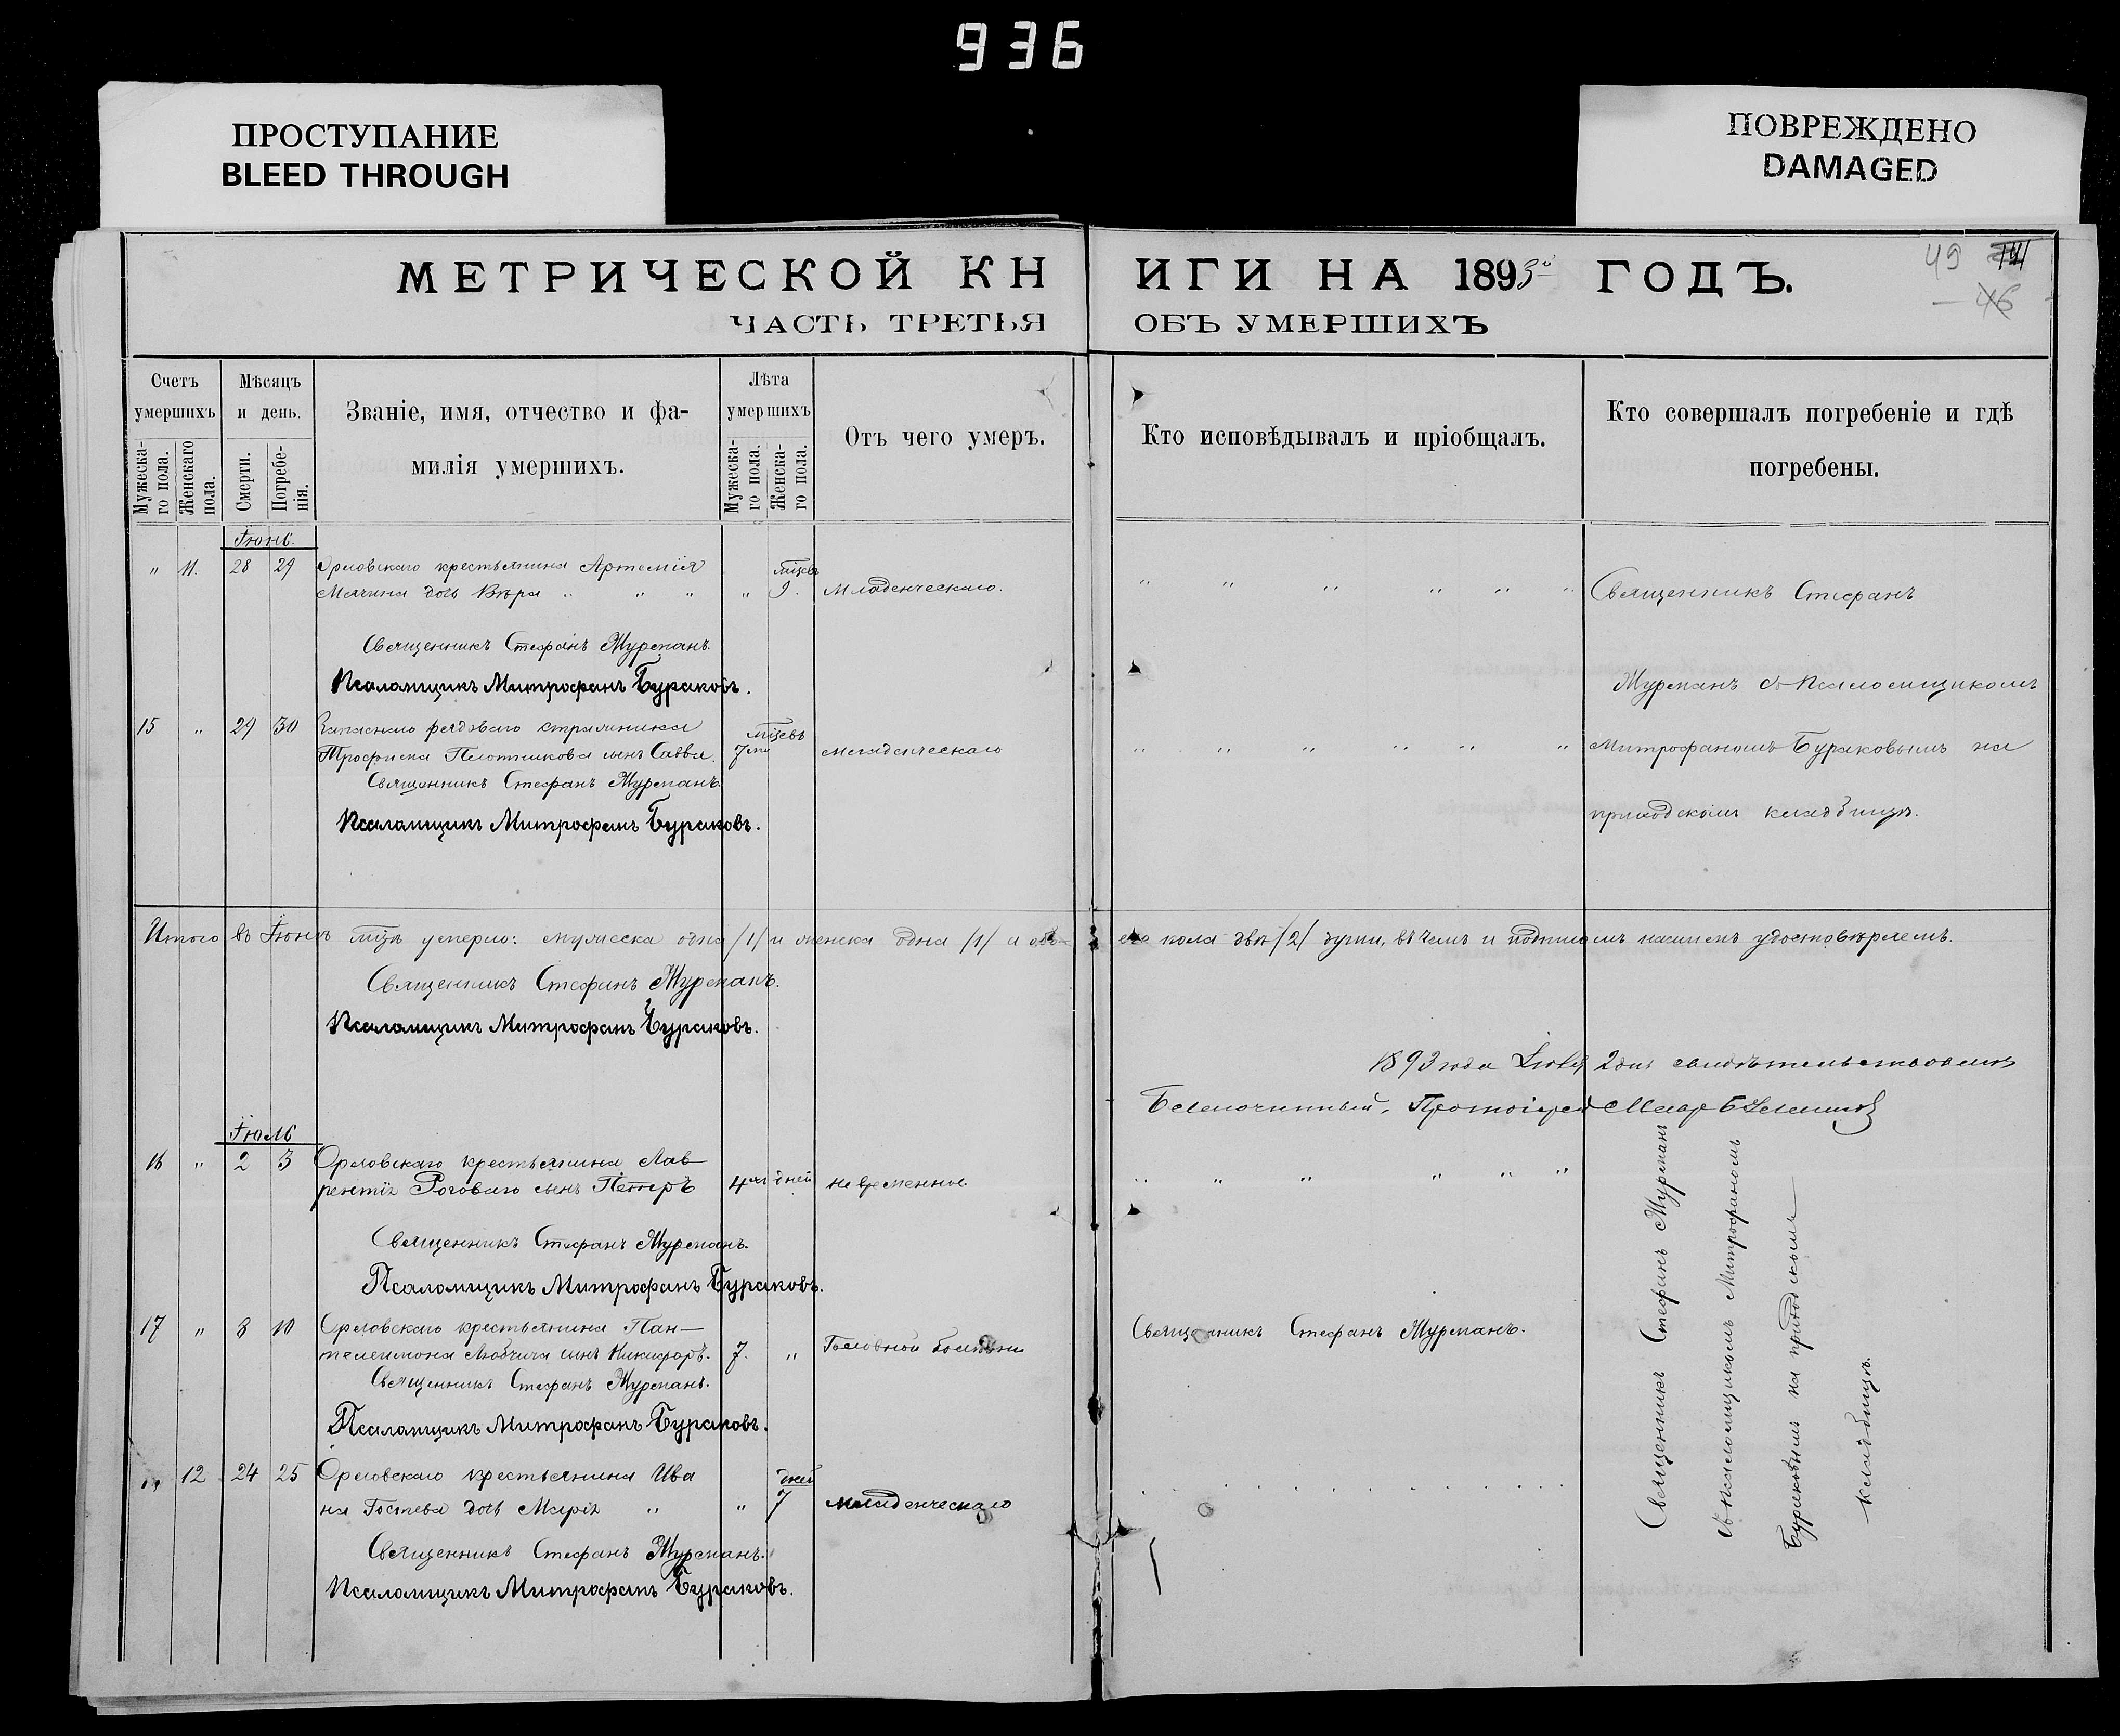 936
ПРОСТУПАНИЕ
BLEED THROUGH
ПОВРЕЖДЕНО
DAMAGED
49
46
МЕТРИЧЕСКОЙ КНИГИ НА 1893й ГОДЪ.
ЧАСТЬ ТРЕТЬЯ ОБЪ УМЕРШИХЪ
Счетъ умершихъ
Мужеска-го пола.
Женскаго пола.
Мѣсяцъ и день.
Смерти.
Погребе-нія.
Званіе, имя, отчество и фа-
милія умершихъ.
Лѣта умершихъ
Мужеска-го пола.
Женска-го пола.
Отъ чего умеръ.
Кто исповѣдывалъ и пріобщалъ.
Кто совершалъ погребеніе и гдѣ
погребены.
Іюнь.
" 11. 28 29 Орловскаго крестьянина Артемія
дочь Вѣра " " " " 9. младенческаго. " " " " " " Священникъ Стефанъ
Священникъ Стефанъ Журманъ.
Псаломщикъ Митрофанъ Бураковъ.
Журманъ съ Псаломщикомъ
15 " 29 30 Запаснаго рядоваго
Трофима Плотникова сынъ Савва. 7ми мѣсяцевъ младенческаго " " " " " " Митрофаномъ Бураковымъ на
Священникъ Стефанъ Журманъ.
Псаломщикъ Митрофанъ Бураковъ.
приходскомъ кладбищѣ.
Итого въ Іюнѣ мцѣ умерло: мужеска одна /1/ и женска одна /1/ а обо-его пола двѣ /2/ души, въ чемъ и подписомъ нашимъ удостовѣряемъ.
Священникъ Стефанъ Журманъ.
Псаломщикъ Митрофанъ Бураковъ.
1893 года Іюля 2 дня свидѣтельствовалъ
Благочинный, Протоіерей
Іюль
16 " 2 3 Орловскаго крестьянина Лав-
рентія Роговаго сынъ Петръ 4хъ дней невременное " " " " " "
Священникъ Стефанъ Журманъ.
Псаломщикъ Митрофанъ Бураковъ.
17 " 8 10 Орловскаго крестьянина Пан-
телеимона Любчича сынъ Никифоръ. 7. " Головной болѣзни Священникъ Стефанъ Журманъ.
Священникъ Стефанъ Журманъ.
Псаломщикъ Митрофанъ Бураковъ.
" 12 24 25 Орловскаго крестьянина Ива
на Гостева дочь Марія " " 7 дней младенческаго
Священникъ Стефанъ Журманъ.
Псаломщикъ Митрофанъ Бураковъ.
Священникъ Стефанъ Журманъ
съ Псаломщикомъ Митрофаномъ
Бураковымъ на приходскомъ
кладбищѣ.